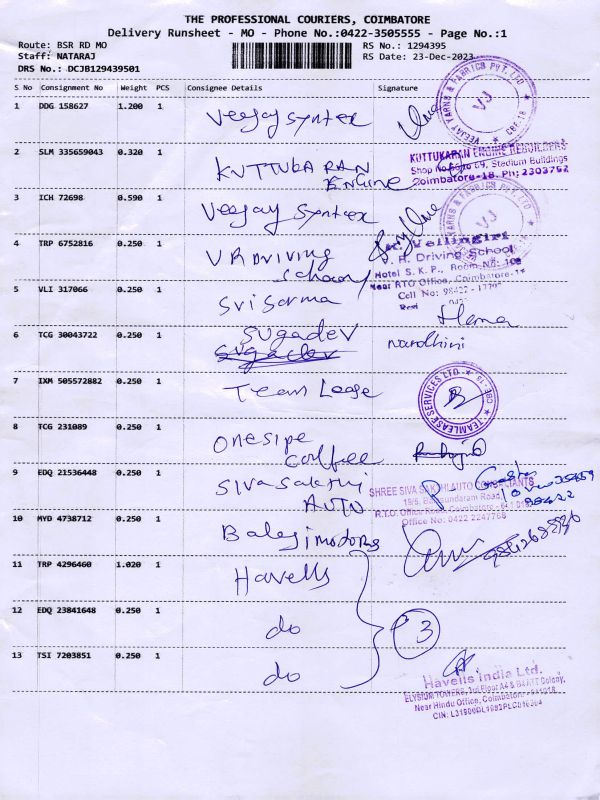 THE PROFESSIONAL COURIERS, COIMBATORE
Delivery Runsheet - MO - Phone No.:0422-3505555 - Page No.:1
Route: BSR RD MO
RS No.: 1294395
Staff: NATARAJ
RS Date: 23-Dec-2023
DRS No.: DCJB129439501
S No Consignment No Weight PCS Consignee Details Signature
1 DDG 158627 1.200 1 Veejay syntex
VEEJAY YARNS & FABRICS PVT. LTD
VJ
CBE-18
2 SLM 335659043 0.320 1 KUTTUKARAN
ENGINE
KUTTUKARAN ENGINE REBUILDERS
Stadium Buildings
Coimbatore-18. Ph: 2303762
3 ICH 72698 0.590 1 Veejay syntex
VJ
4 TRP 6752816 0.250 1 V R DRIVING
School
Vellingiri
V. R. Driving School
Hotel S.K.P., Room No: 108
Near RTO Office, Coimbatore-18
Cell No: 98422
5 VLI 317066 0.250 1 Sri Sarma
Hema
6 TCG 30043722 0.250 1 SUGADEV
Sugadev
Nandhini
7 IXM 505572882 0.250 1 Team Lease
TEAMLEASE SERVICES LTD.
CBE-18
8 TCG 231089 0.250 1 onesipe
coffee
9 EDQ 21536448 0.250 1 Siva Sakthi
AUTO
SHREE SIVA SAKTHI AUTO CONSULTANTS
15/5, Balasundaram Road,
R.T.O. Office Road, Coimbatore - 641 018
Office No: 0422 2247768
10 MYD 4738712 0.250 1 Balaji motors
11 TRP 4296460 1.020 1 Havells
12 EDQ 23841648 0.250 1 do
3
13 TSI 7203851 0.250 1 do
Havells India Ltd.
ELYSIUM TOWERS, 3rd Floor A4 & B4 ATT Colony,
Near Hindu Office, Coimbatore - 641018.